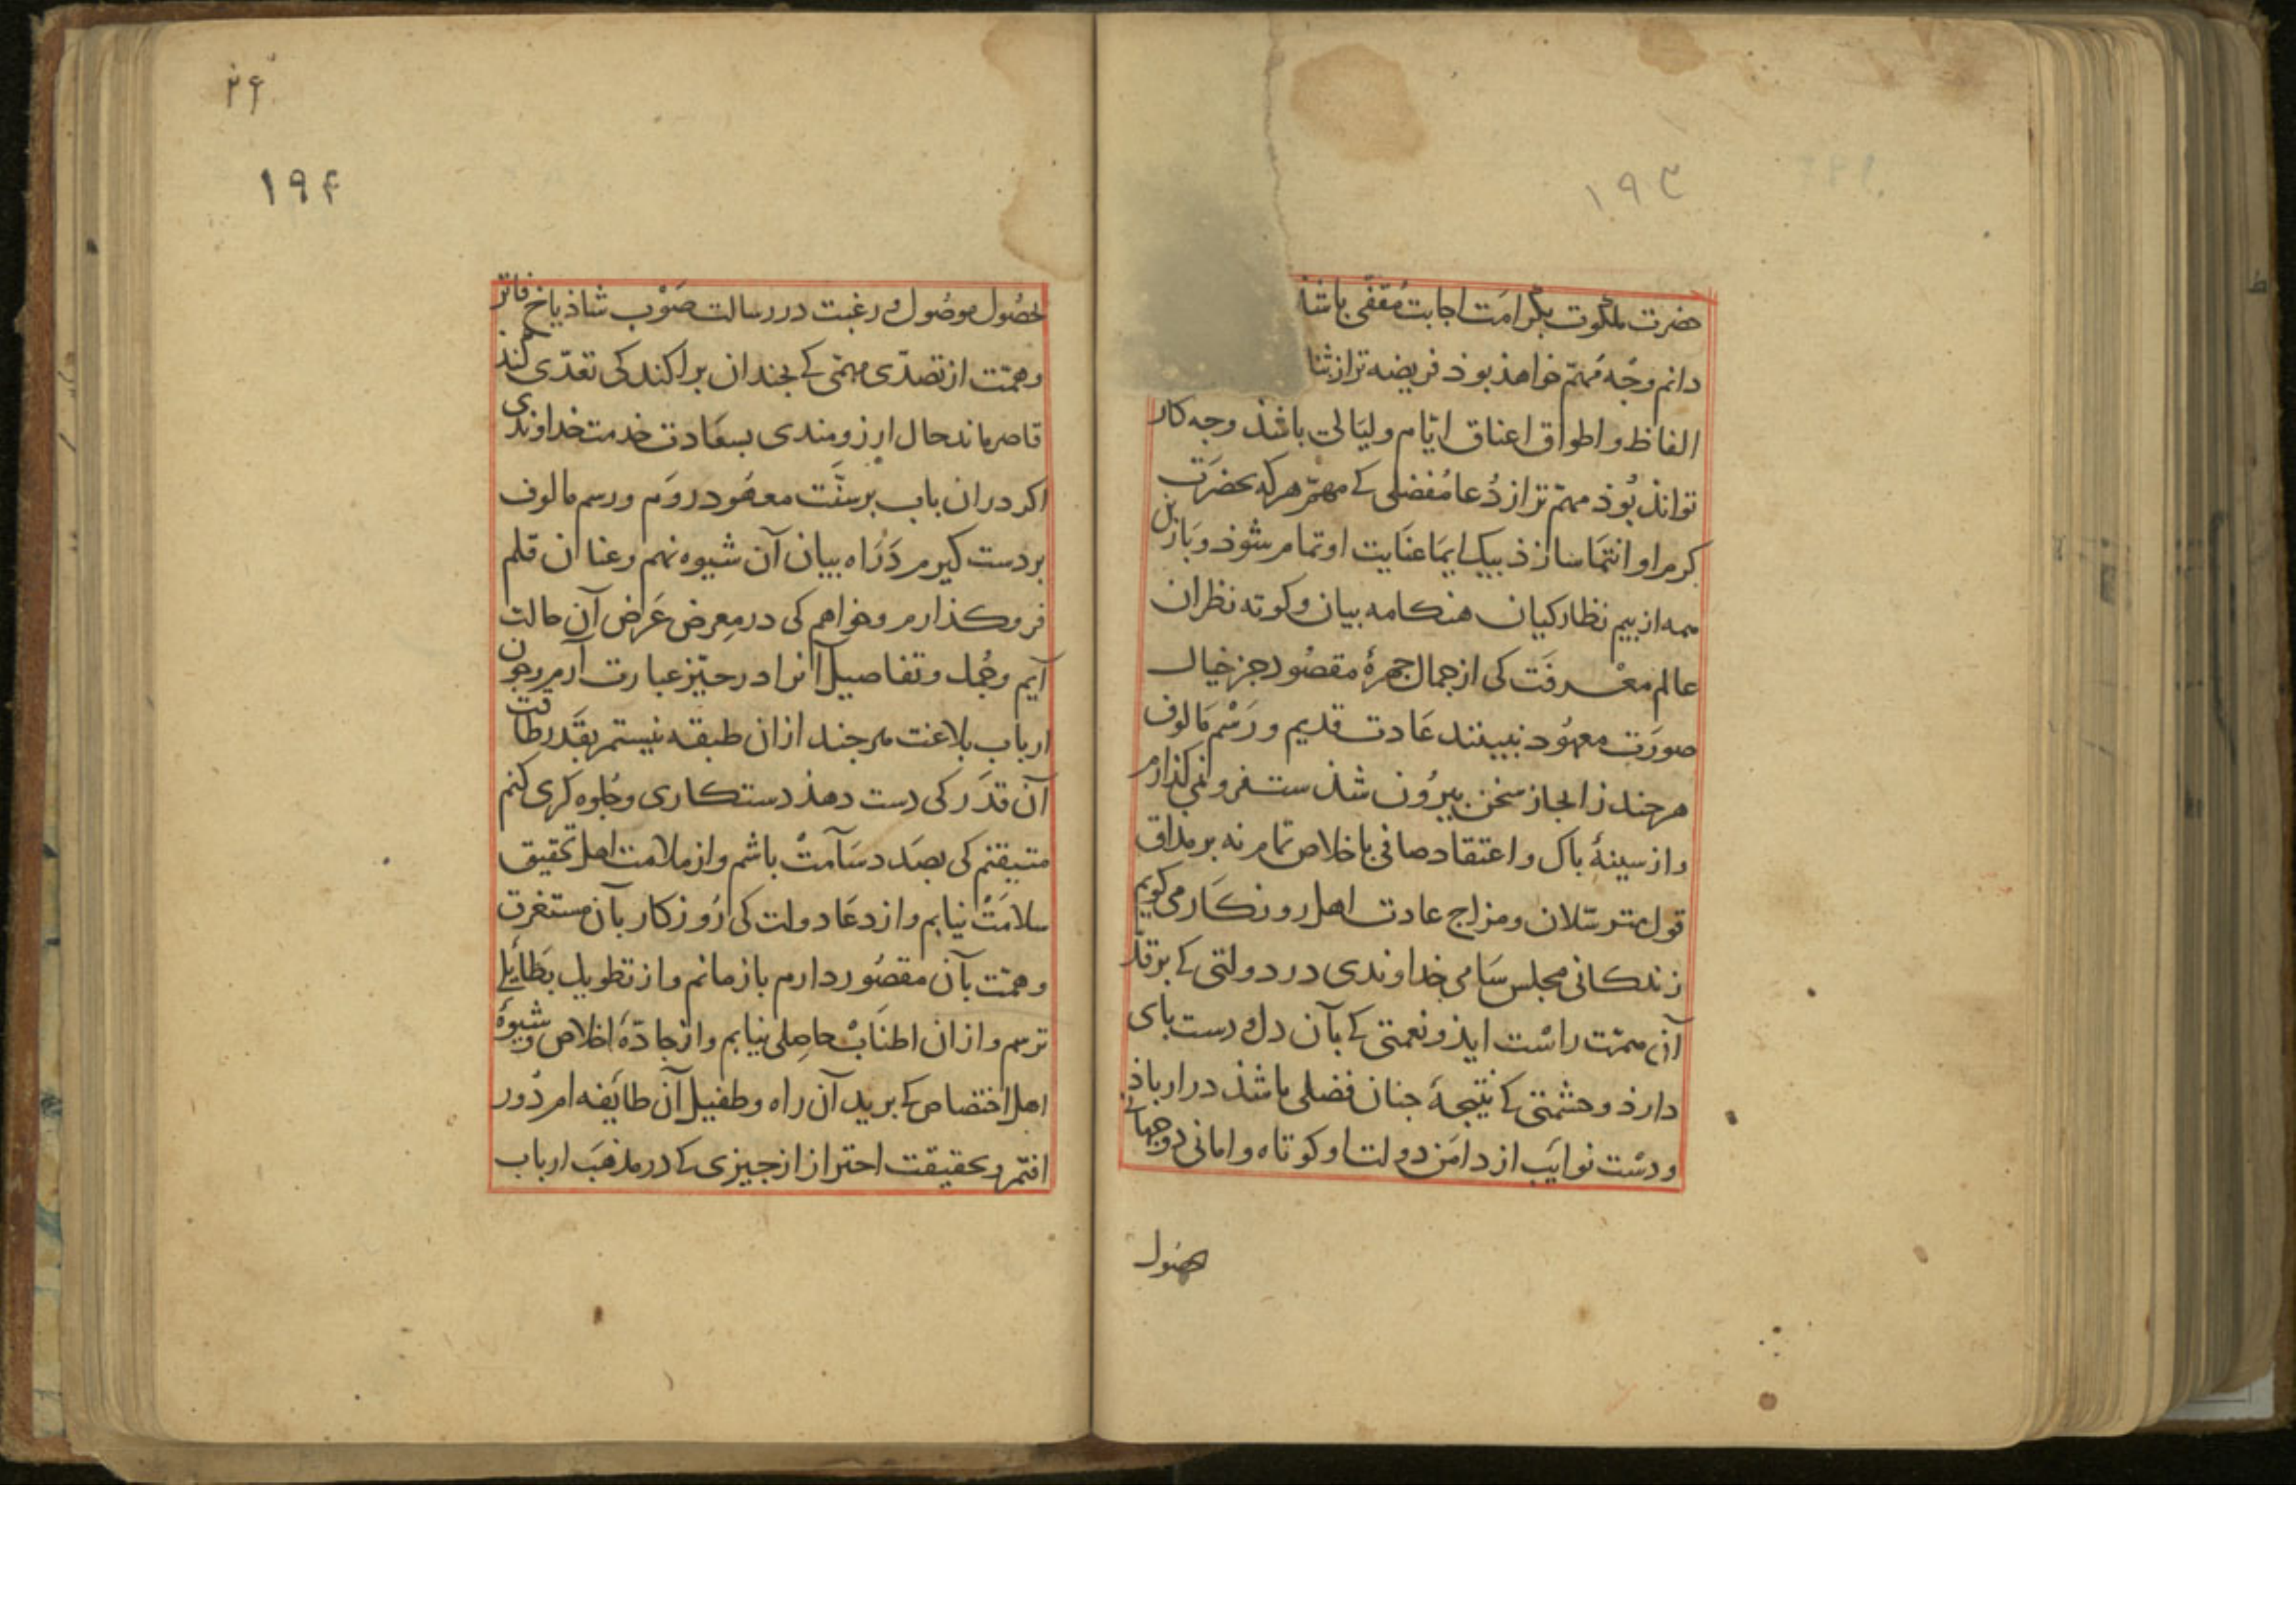 ۱۹۳
حضرت ملکوت بکرامت اجابت مقفّی باشذ
دانم وجْه مُهمّ خواهذ بوذ فریضه تر از ثنا
الفاظ و اطواق اعناق ایّام و لیَالی باشذ وجه کار
تواند بُوذ مهمّ تر از دُعا مُفضلی کے مهمّ هر که بحضرَت
کرم او انتما سازذ بیک ایمَا عنَایت او تمام شوذ و بَاز
همه از بیم نظارکیان هنکامه بیان و کوته نظران
عالم معْرفَت کی از جمال جهرهٔ مقصُود جز خیال
صورَت معهُود نبینند عَادت قدیم و رَسْم مَالوف
هرجند ز ایجاز سخن بیرُون شذست فرو نمی کذارم
و از سینهٔ باک و اعتقاد صافی باخلاص تمام نه بر مذاق
قول مترسّلان و مزاج عادت اهل روزکَار می کویم
زندکانی مجلس سَامی خداوندی در دولتی کے بر قدّ
آن همّت راسْت ایذ و نعمتی کے بآن دل و دست بای
دارذ و حشمتی کے نتیجهٔ جنان فضلی باشذ دراز باذ
و دسْت نوایَب از دامَن دولت او کوتاه و امانی دو جهانی
حصُول
۲۶
۱۹۴
بحصُول موصُول و رغبت در رسالت صَوْب شاذیاخ فاتر
و همّت از تصدّی مهمّی کے بخندان براکند کی تعدّی کند
قاصر ماند حال ارزومندی بسعَادت خدمت خداوندی
اکر دران باب بر سنَّت معهُود روَم و رسم مالوف
بر دست کیرم و دَرَاه بیان آن شیوه نهم و عنان قلم
فروکذارم و خواهم کی در معرض عَرض آن حالت
آیم و جُمل و تفاصیل آنرا در حیّز عبارت آرم و جون
ارباب بلاغت هرجند ازان طبقه نیستم بقَدر طاقت
آن قدَر کی دست دهذ دستکاری و جلوه کری کنم
متیقنم کی بصَدد سَآمتْ باشم و از ملامت اهل تحقیق
سلامَتْ نیابم و از دعَا دولت کی رُوزکار بآن مستغرق
و همّت بآن مقصُور دارم باز مانم و از تطویل بطَایلی
ترسم و ازان اطنَابْ حاصِلی نیابم و از جادّهٔ اخلاص و شیوهٔ
اهل اختصاص کے برید آن راه و طفیل آن طایفه ام دُور
افتم و بحقیقت احتراز از جیزی کے در مذهَب ارباب